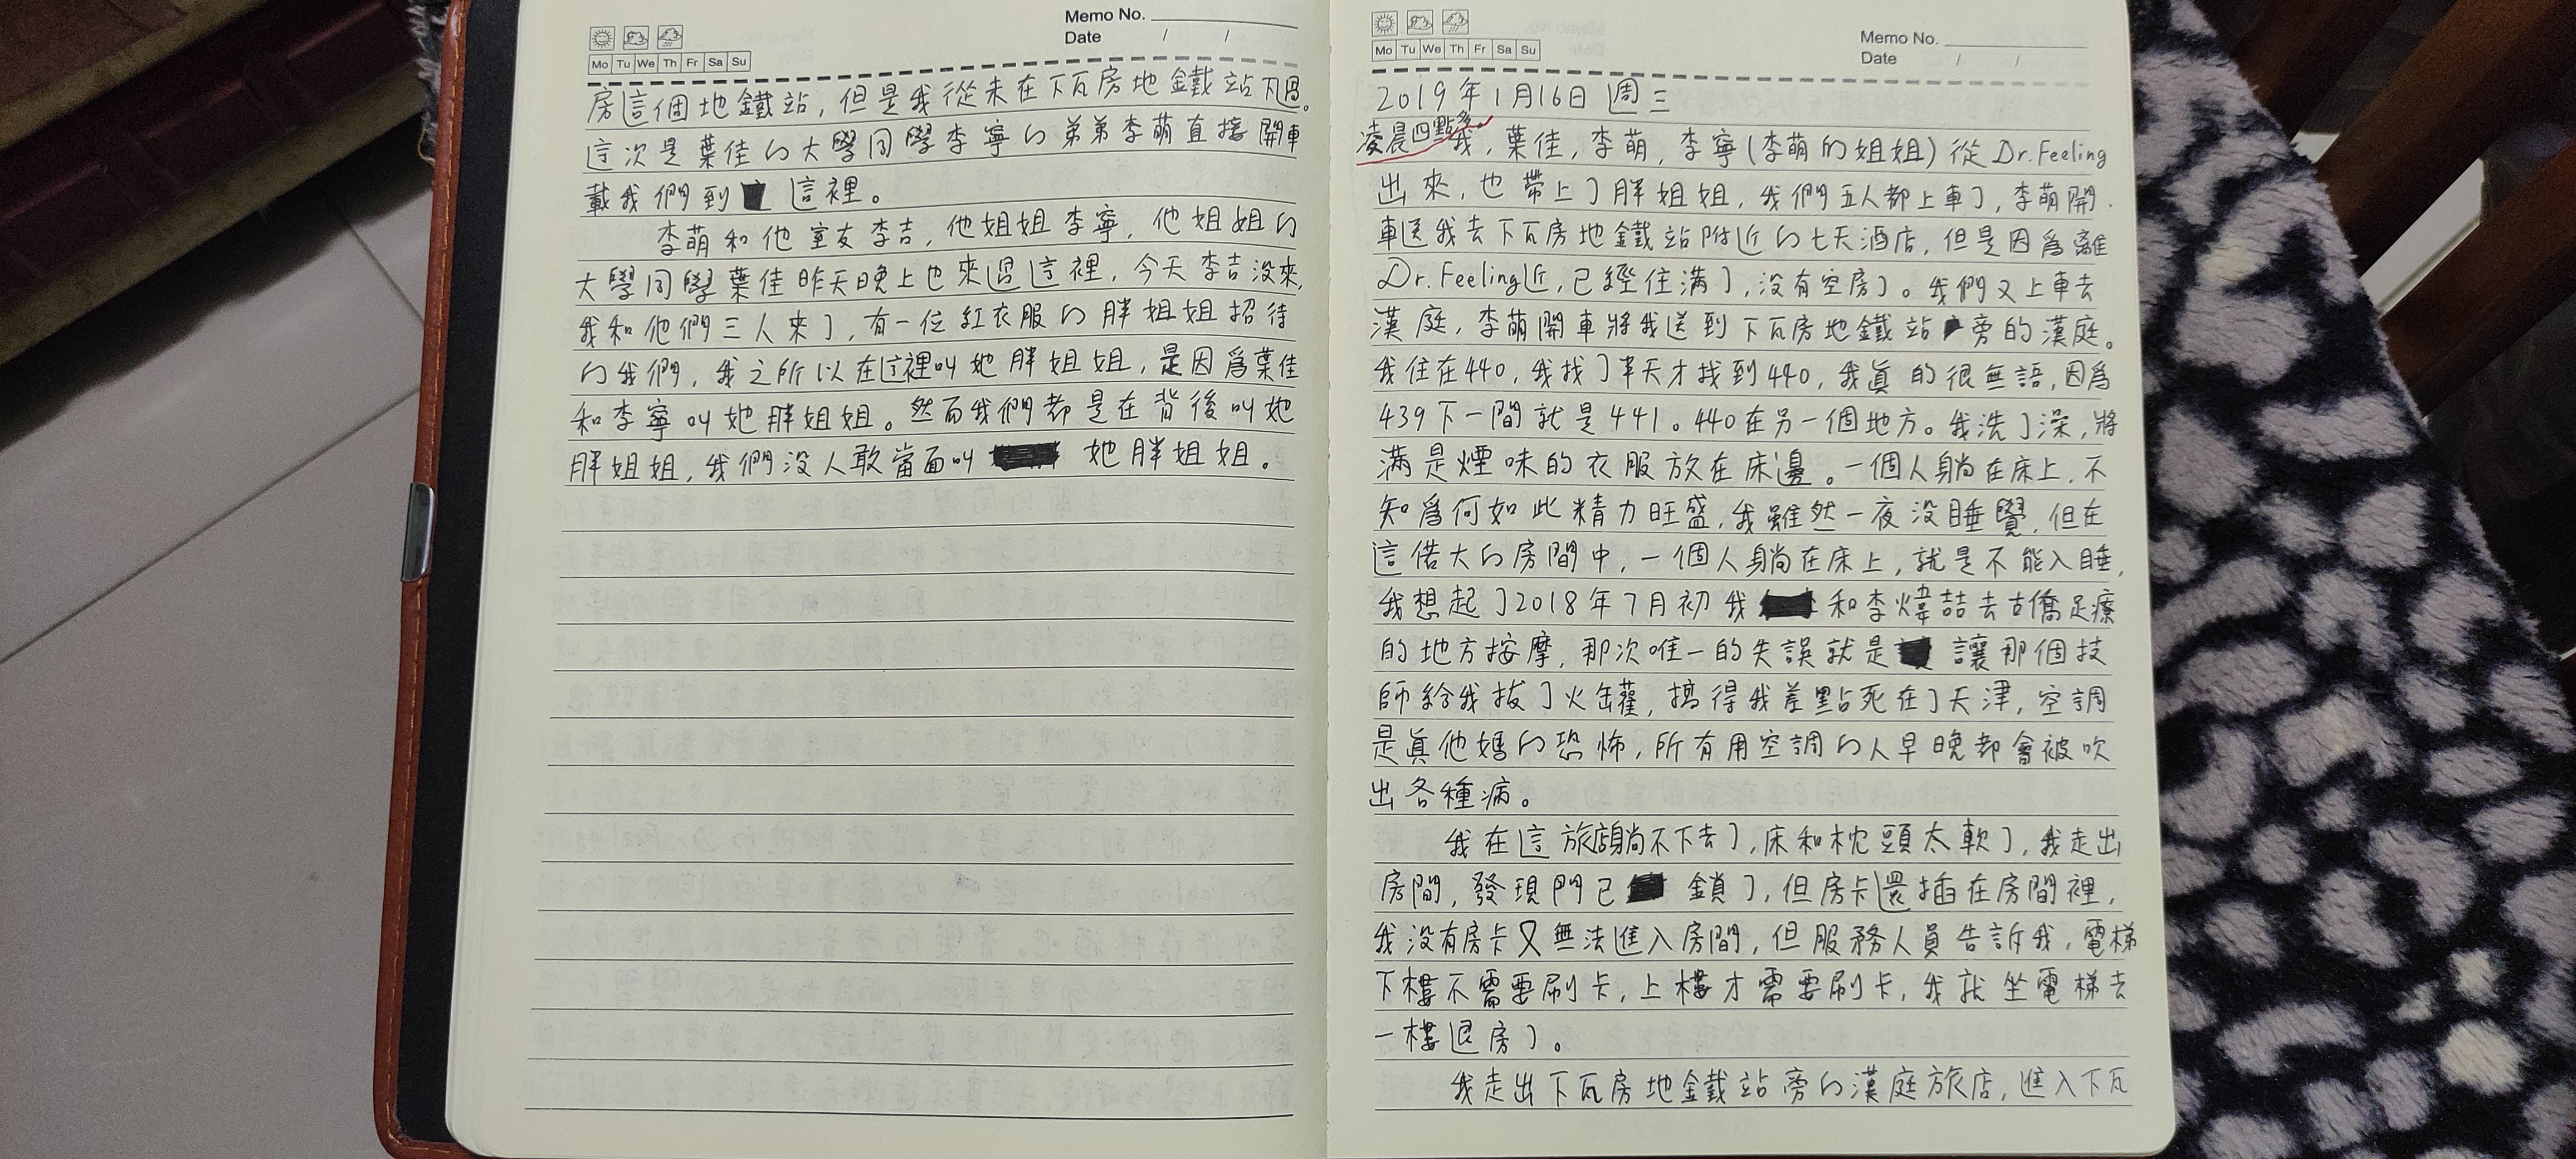 Memo No.
Date / /
Mo Tu We Th Fr Sa Su
房這個地鐵站，但是我從未在下瓦房地鐵站下過。
這次是葉佳的大學同學李寧的弟弟李萌直接開車
載我們到這裡。
李萌和他室友李吉，他姐姐李寧，他姐姐的
大學同學葉佳昨天晚上也來過這裡，今天李吉沒來，
我和他們三人來了，有一位紅衣服的胖姐姐招待
的我們，我之所以在這裡叫她胖姐姐，是因爲葉佳
和李寧叫她胖姐姐。然而我們都是在背後叫她
胖姐姐，我們沒人敢當面叫她胖姐姐。
Memo No.
Date / /
Mo Tu We Th Fr Sa Su
2019年1月16日 週三
凌晨四點多。我，葉佳，李萌，李寧(李萌的姐姐)從Dr.Feeling
出來，也帶上了胖姐姐，我們五人都上車了，李萌開
車送我去下瓦房地鐵站附近的七天酒店，但是因爲離
Dr.Feeling近，已經住滿了，沒有空房了。我們又上車去
漢庭，李萌開車將我送到下瓦房地鐵站旁的漢庭。
我住在440，我找了半天才找到440，我眞的很無語，因爲
439下一間就是441。440在另一個地方。我洗了澡，將
滿是煙味的衣服放在床邊。一個人躺在床上，不
知爲何如此精力旺盛，我雖然一夜沒睡覺，但在
這偌大的房間中，一個人躺在床上，就是不能入睡，
我想起了2018年7月初我和李煒喆去古僑足療
的地方按摩，那次唯一的失誤就是讓那個技
師給我拔了火罐，搞得我差點死在了天津，空調
是眞他媽的恐怖，所有用空調的人早晚都會被吹
出各種病。
我在這旅店躺不下去了，床和枕頭太軟了，我走出
房間，發現門已鎖了，但房卡還插在房間裡，
我沒有房卡又無法進入房間，但服務人員告訴我，電梯
下樓不需要刷卡，上樓才需要刷卡，我就坐電梯去
一樓退房了。
我走出下瓦房地鐵站旁的漢庭旅店，進入下瓦